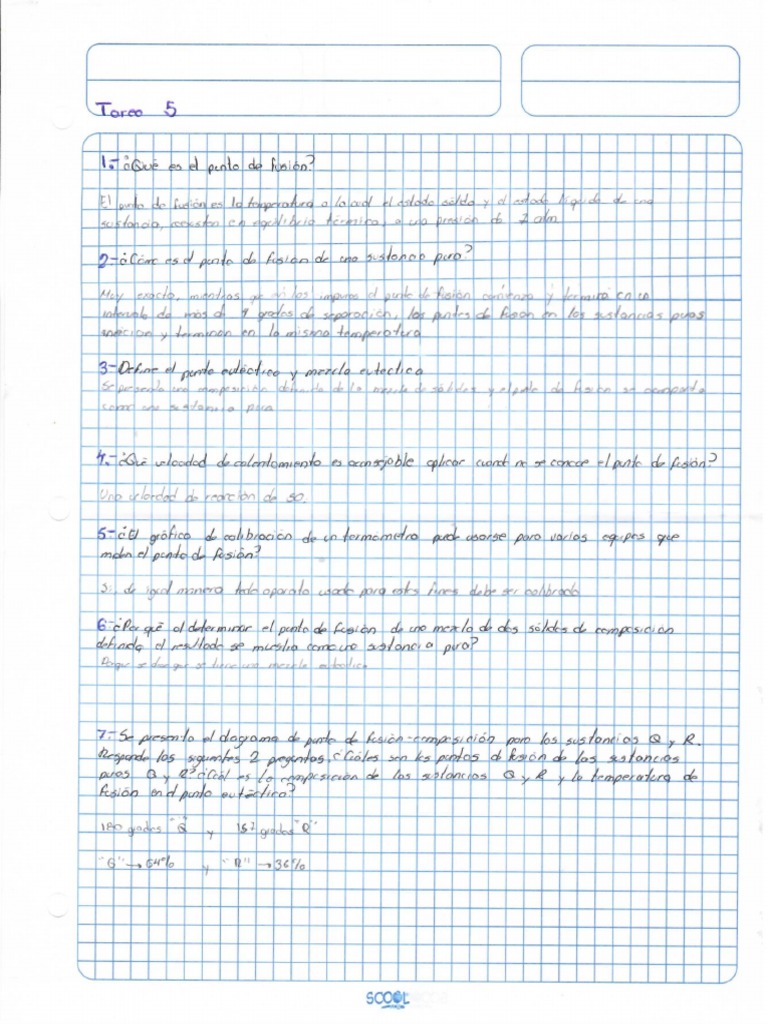 Tarea 5
1.- ¿Qué es el punto de fusión?
El punto de fusión es la temperatura a la cual el estado sólido y el estado líquido de una
sustancia, coexisten en equilibrio térmico, a una presión de 1 atm
2- ¿Cómo es el punto de fusión de una sustancia pura?
Muy exacto, mientras que en las impuras el punto de fusión comienza y termina en un
intervalo de más de 1 grados de separación, los puntos de fusión en las sustancias puras
inician y terminan en la misma temperatura
3- Define el punto eutéctico y mezcla eutectica
Se presenta una composición definida de la mezcla de sólidos y el punto de fusión se comporta
como una sustancia pura
4.- ¿Qué velocidad de calentamiento es aconsejable aplicar cuando no se conoce el punto de fusión?
Una velocidad de reacción de 50.
5- ¿El gráfico de calibración de un termómetro puede usarse para varios equipos que
midan el punto de fusión?
Si, de igual manera todo aparato usado para estos fines debe ser calibrado
6- ¿Por qué al determinar el punto de fusión de una mezcla de dos sólidos de composición
definida el resultado se muestra como una sustancia pura?
Porque se dice que se tiene una mezcla eutectica
7.- Se presenta el diagrama de punto de fusión-composición para las sustancias Q y R.
Responde las siguientes 2 preguntas. ¿Cuáles son los puntos de fusión de las sustancias
puras Q y R? ¿Cuál es la composición de las sustancias Q y R y la temperatura de
fusión en el punto eutéctico?
180 grados "Q" y 157 grados "R"
"Q" → 64% y "R" → 36%
SCOOL